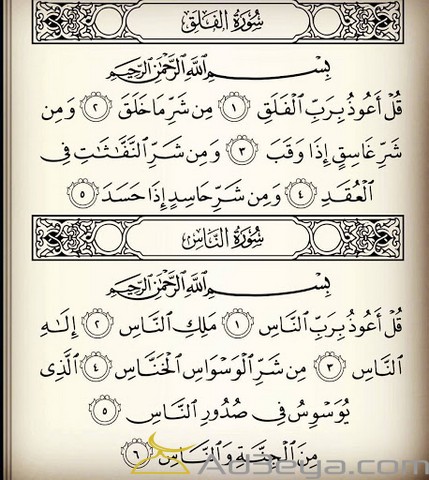 سُورَةُ الفَلَقِ
بِسْمِ ٱللَّهِ ٱلرَّحْمَٰنِ ٱلرَّحِيمِ
قُلْ أَعُوذُ بِرَبِّ ٱلْفَلَقِ ١ مِن شَرِّ مَا خَلَقَ ٢ وَمِن
شَرِّ غَاسِقٍ إِذَا وَقَبَ ٣ وَمِن شَرِّ ٱلنَّفَّٰثَٰتِ فِى
ٱلْعُقَدِ ٤ وَمِن شَرِّ حَاسِدٍ إِذَا حَسَدَ ٥
سُورَةُ النَّاسِ
بِسْمِ ٱللَّهِ ٱلرَّحْمَٰنِ ٱلرَّحِيمِ
قُلْ أَعُوذُ بِرَبِّ ٱلنَّاسِ ١ مَلِكِ ٱلنَّاسِ ٢ إِلَٰهِ
ٱلنَّاسِ ٣ مِن شَرِّ ٱلْوَسْوَاسِ ٱلْخَنَّاسِ ٤ ٱلَّذِى
يُوَسْوِسُ فِى صُدُورِ ٱلنَّاسِ ٥
مِنَ ٱلْجِنَّةِ وَٱلنَّاسِ ٦
Ad3eya.com